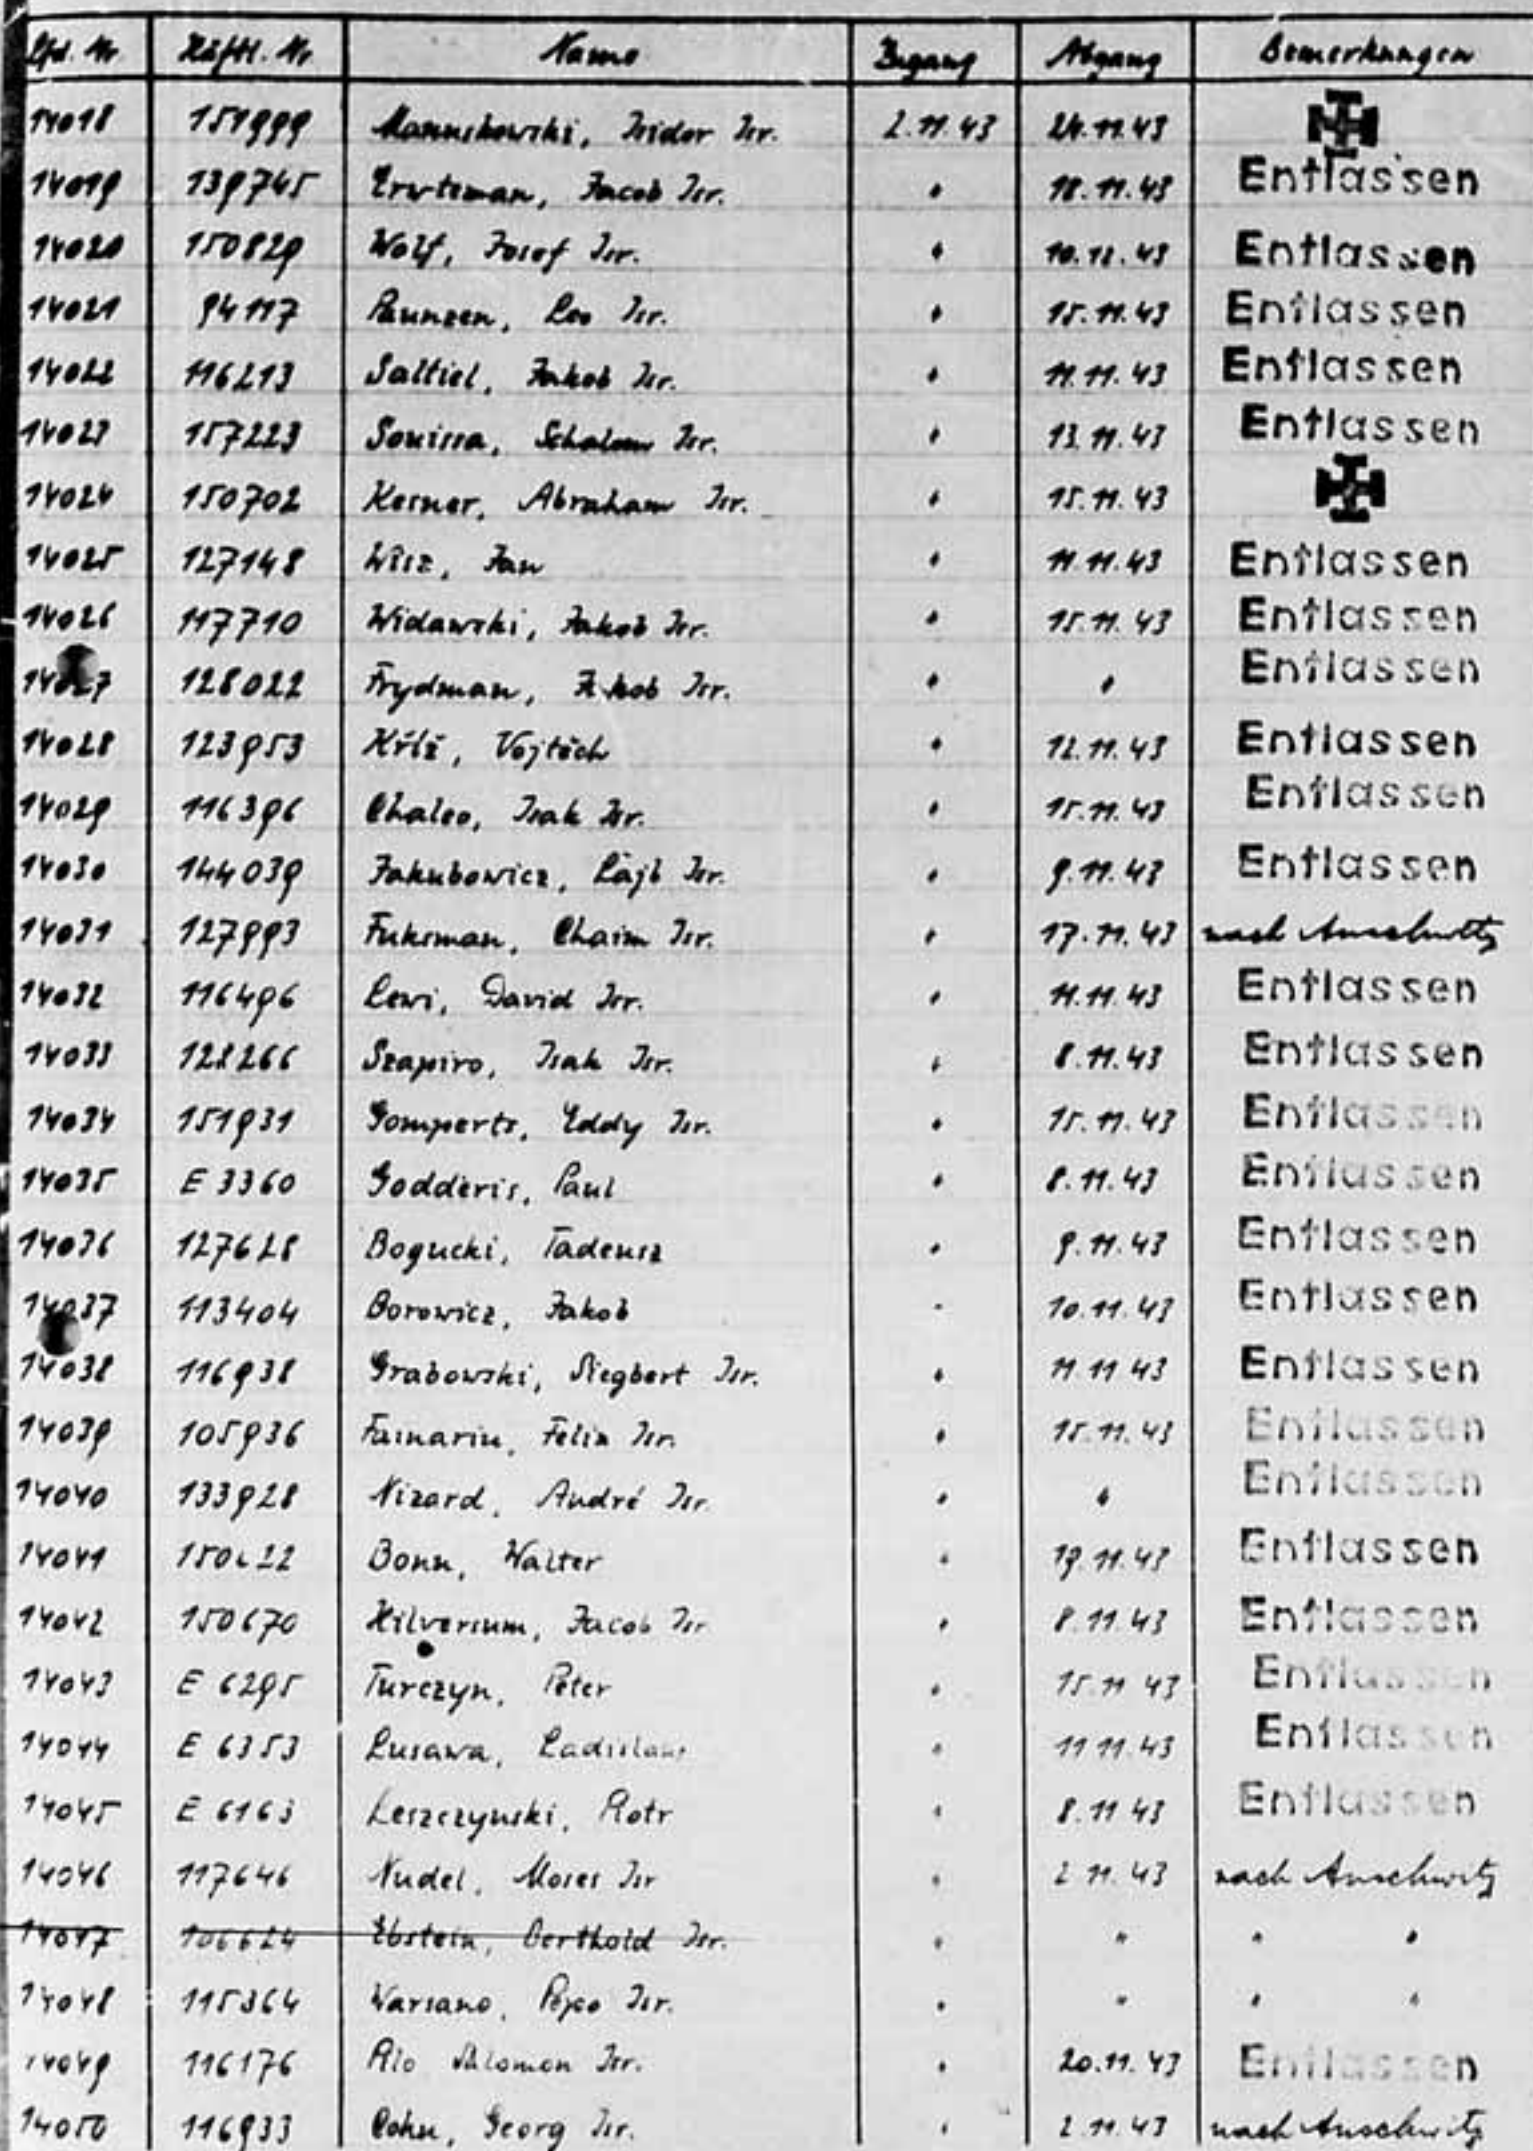 Lfd. Nr Häftl. Nr Name Zugang Abgang Bemerkungen
14018 151999 Mannskowski, Isidor Isr. 2.11.43 24.11.43
14019 139745 Erwteman, Jacob Isr. " 18.11.43 Entlassen
14020 150829 Wolf, Josef Isr. " 10.12.43 Entlassen
14021 94117 Paunzen, Leo Isr. " 15.11.43 Entlassen
14022 116213 Saltiel, Jakob Isr. " 11.11.43 Entlassen
14023 157223 Souissa, Schalom Isr. " 13.11.43 Entlassen
14024 150702 Kesner, Abraham Isr. " 15.11.43
14025 127148 Wisz, Jan " 11.11.43 Entlassen
14026 117710 Widawski, Jakob Isr. " 15.11.43 Entlassen
14027 128022 Frydman, Jakob Isr. " " Entlassen
14028 123953 Kříž, Vojtěch " 12.11.43 Entlassen
14029 116396 Chaleo, Isak Isr. " 15.11.43 Entlassen
14030 144039 Jakubowicz, Lajb Isr. " 9.11.43 Entlassen
14031 127993 Fuksman, Chaim Isr. " 17.11.43 nach Auschwitz
14032 116496 Lewi, David Isr. " 11.11.43 Entlassen
14033 128266 Szapiro, Isak Isr. " 8.11.43 Entlassen
14034 151931 Gomperts, Eddy Isr. " 15.11.43 Entlassen
14035 E 3360 Godderis, Paul " 8.11.43 Entlassen
14036 127628 Bogucki, Tadeusz " 9.11.43 Entlassen
14037 113404 Borowicz, Jakob " 10.11.43 Entlassen
14038 116938 Grabowski, Siegbert Isr. " 11.11.43 Entlassen
14039 105936 Fainariu, Felix Isr. " 15.11.43 Entlassen
14040 133928 Nizard, André Isr. " " Entlassen
14041 150622 Bonn, Walter " 19.11.43 Entlassen
14042 150670 Hilversum, Jacob Isr " 8.11.43 Entlassen
14043 E 6295 Turczyn, Peter " 15.11.43 Entlassen
14044 E 6353 Lusawa, Ladislaus " 11.11.43 Entlassen
14045 E 6163 Leszczynski, Piotr " 8.11.43 Entlassen
14046 117646 Nudel, Moses Isr " 2.11.43 nach Auschwitz
14047 106624 Ebstein, Berthold Isr. " " " "
14048 115364 Warsano, Pepo Isr. " " " "
14049 116176 Alo Salomon Isr. " 20.11.43 Entlassen
14050 116933 Cohn, Georg Isr. " 2.11.43 nach Auschwitz